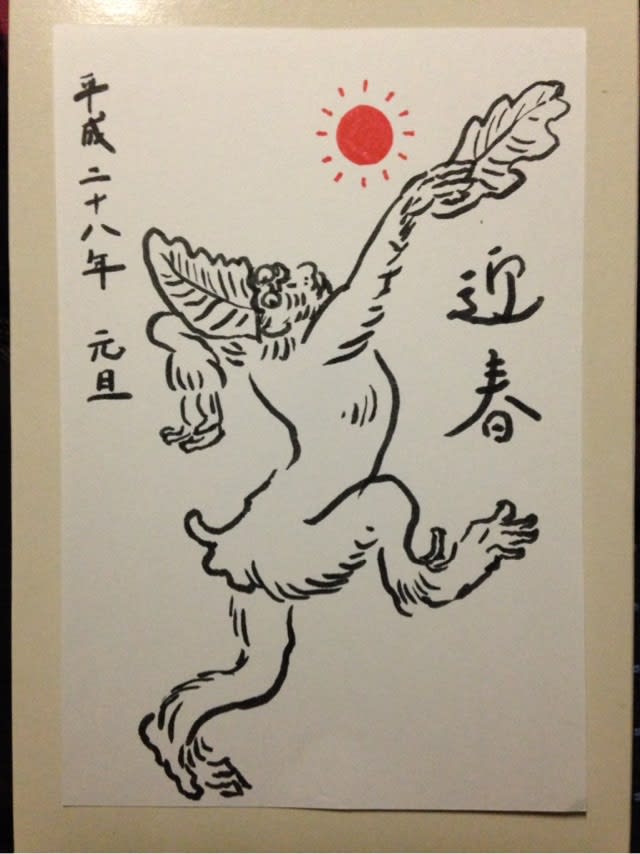 迎春
平成二十八年 元旦